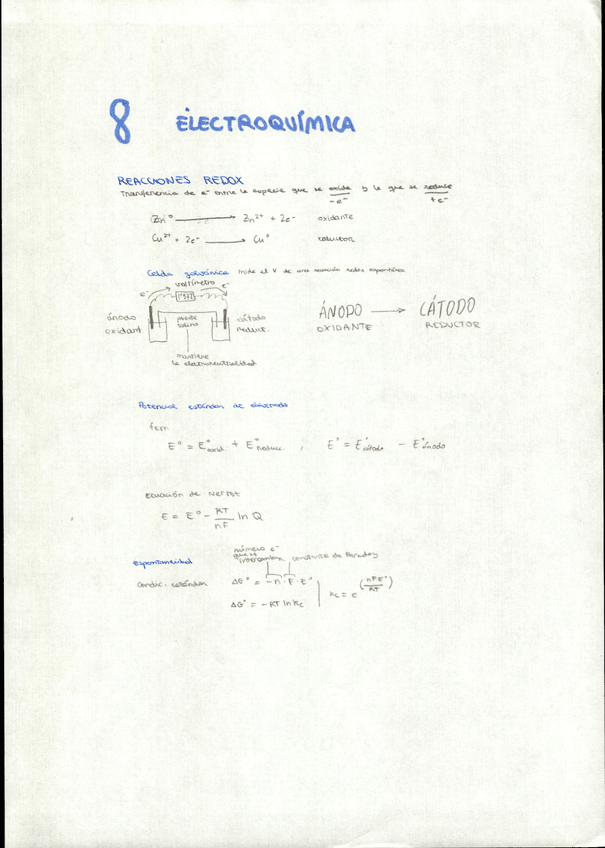 8 ELECTROQUÍMICA
REACCIONES REDOX
Transferencia de e⁻ entre la especie que se oxida y la que se reduce
-e⁻ +e⁻
Zn⁰ → Zn²⁺ + 2e⁻ oxidante
Cu²⁺ + 2e⁻ → Cu⁰ reductor
Celda galvánica mide el V de una reacción redox espontánea
voltímetro
e⁻ e⁻
ánodo puente cátodo
oxidant salino reduct.
mantiene
la electroneutralidad
ÁNODO → CÁTODO
OXIDANTE REDUCTOR
Potencial estándar de electrodo
fem
E° = E°oxid. + E°reducc. ; E° = E°cátodo - E°ánodo
Ecuación de Nernst
E = E° - RT/nF ln Q
Espontaneidad
número e⁻
que se
intercambian constante de Faraday
Condic. estándar ΔG° = -n·F·E°
ΔG° = -RT ln Kc
Kc = e^(nFE°/RT)